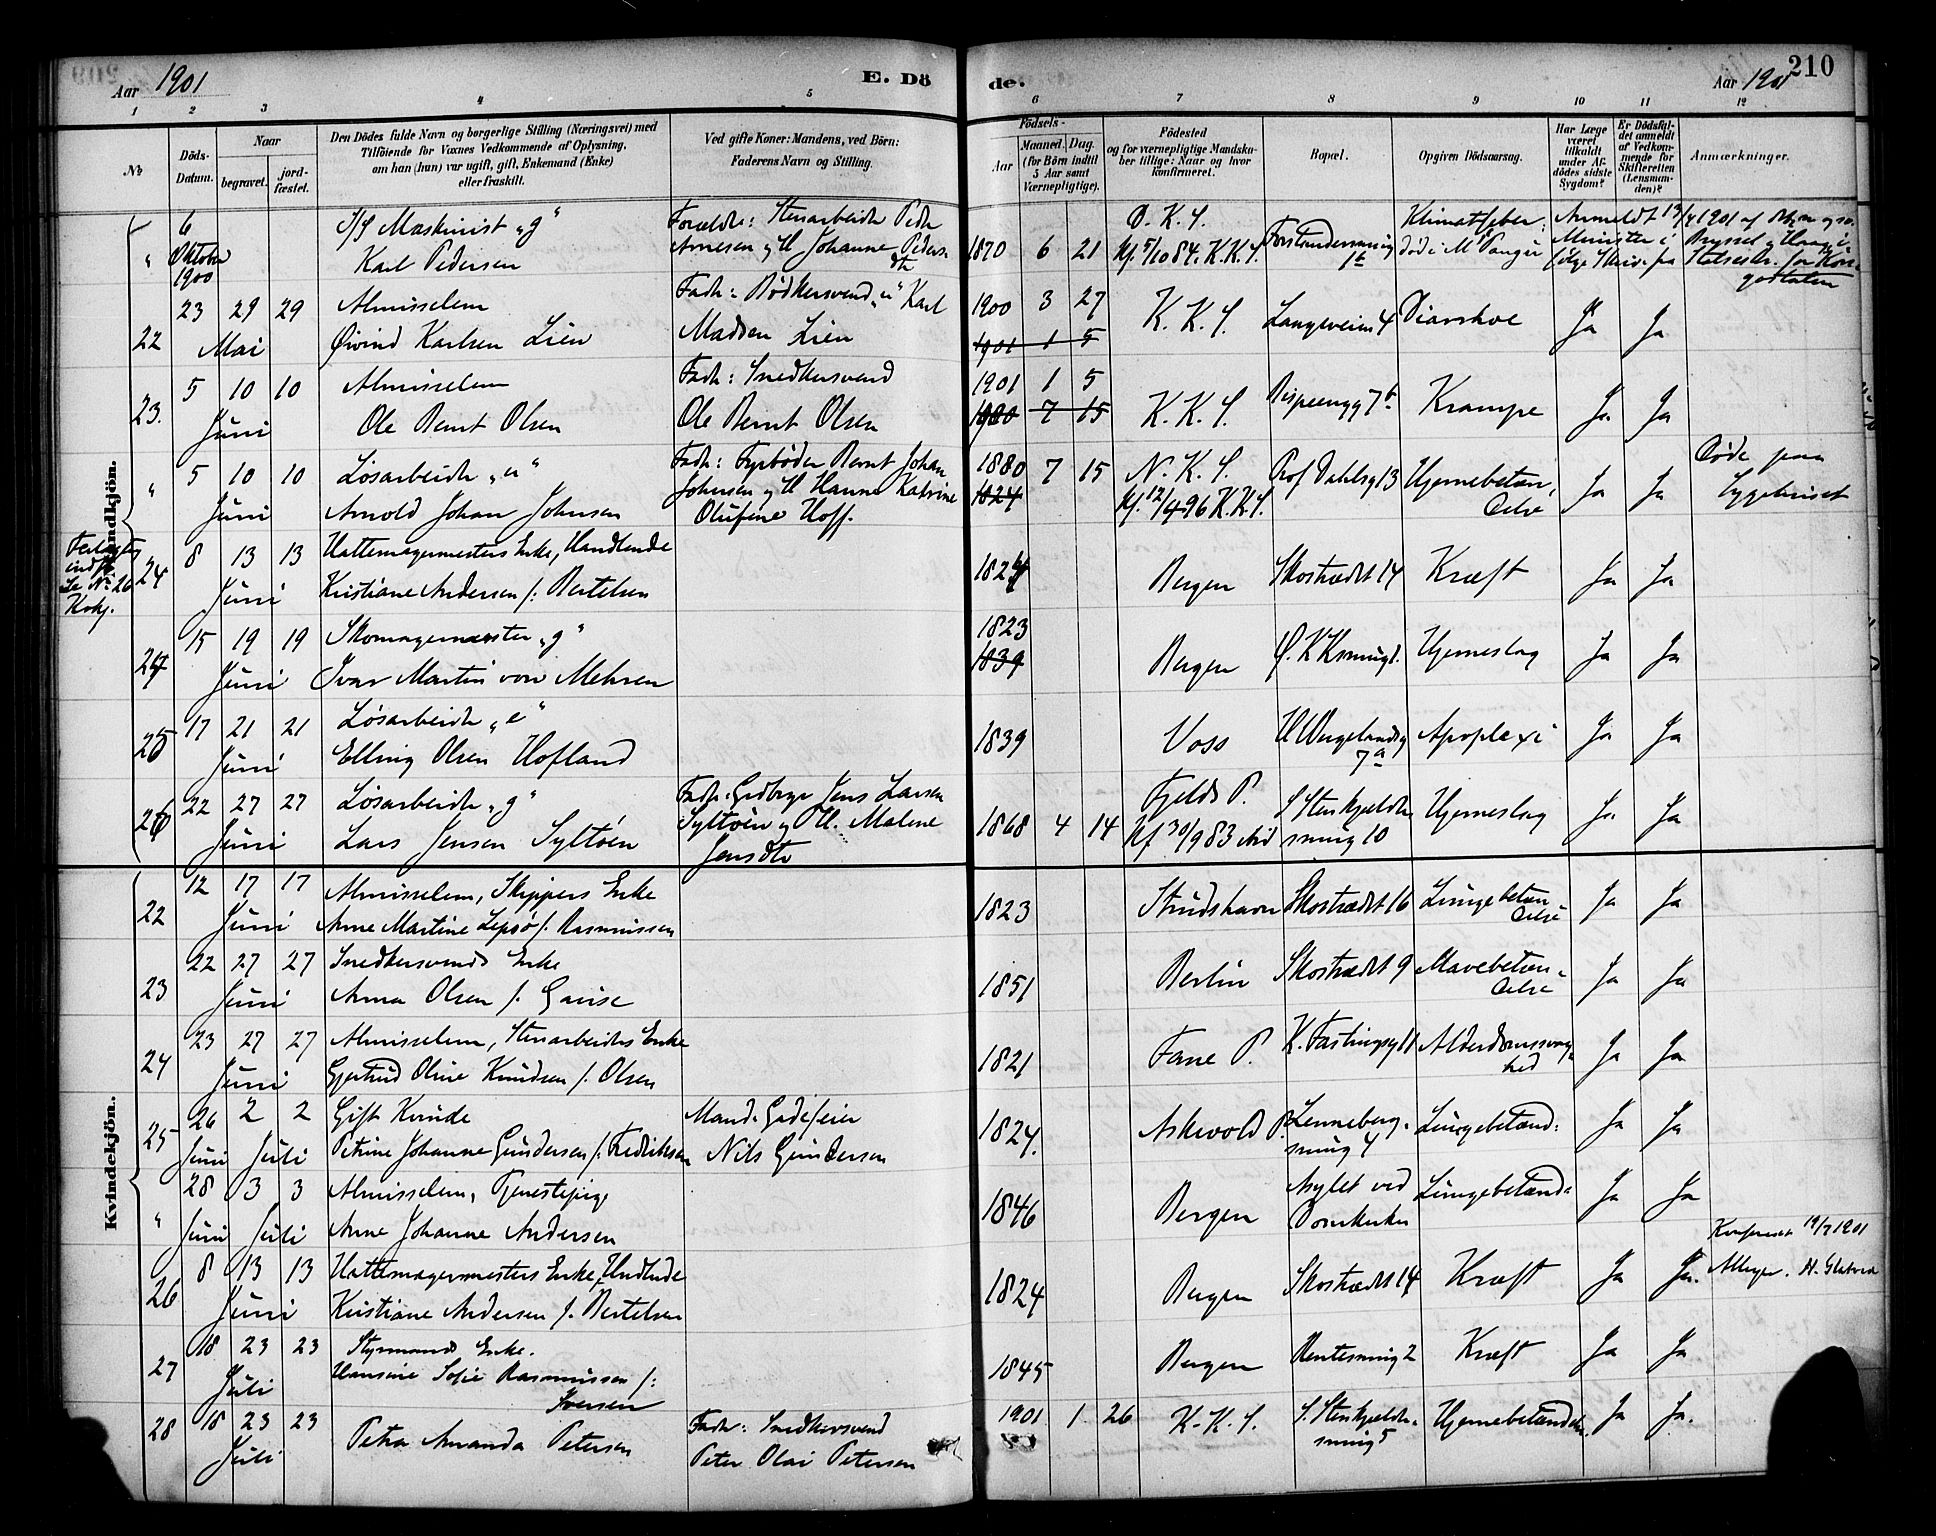 Aar 1901
E. Dö
de.
Aar 1901
210
1 2 3 4 5 6 7 8 9 10 11 12
No
Döds-Datum.
Naar
begravet.
jord-fæstet.
Den Dödes fulde Navn og borgerlige Stilling (Næringsvei) med
Tilföiende for Voxnes Vedkommende af Oplysning,
om han (hun) var ugift, gift, Enkemand (Enke)
eller fraskilt.
Ved gifte Koner: Mandens, ved Börn:
Faderens Navn og Stilling.
Födsels-
Aar
Maaned. Dag.
(for Börn indtil
5 Aar samt
Værnepligtige).
Födested
og for værnepligtige Mandska-
ber tillige: Naar og hvor
konfirmeret.
Bopæl.
Opgiven Dödsaarsag.
Har Læge
været
tilkaldt
under Af-
dödes sidste
Sygdom?
Er Dödsfal-
det anmeldt
af Vedkom-
mende for
Skifteretten
(Lensman-
den)?
Anmærkninger.
Mandkjön.
" 6 Oktober 1900
S/S Maskinist „g“
Karl Pedersen
Forældre: Stenarbeider Peder
Arnesen og H. Johanne Peders-
dtr
1870 6 21
D. K. S.
Kf. 5/10 84. K. K. S.
Klimatfeber.
Anmeldt 13/4 1901
22 23 29 29 Mai
Almisselem
Øivind Karlsen Lien
Fader: Bødkersvend „u“ Karl
Madsen Lien
1900 3 27
1901 1 5
K. K. S.
Langeveien 4
Diarrhoe
Ja Ja
23. 5 10 10 Juni
Almisselem
Ole Bernt Olsen
Fader: Snedkersvend
Ole Bernt Olsen
1901 1 5
1880 7 15
K. K. S.
Krampe
Ja Ja
" 5 10 10 Juni
Løsarbeider „u“
Arnold Johan Johnsen
Fader: Fyrbøder Bernt Johan
Johnsen og H. Hanna Katrine
Olufine Hoff.
1880 7 15
1824
N. K. S.
Kf. 12/4 96 K. K. S.
Prof Dahlsg 13
Hjernebetæn-
delse
Ja Ja
Døde paa
Sygehuset
Se No 26
Kvkj.
24 8 13 13 Juni
Hattemagermesters Enke, Handlende
Kristiane Andersen f. Bertelsen
1824
Bergen
Skostrædet 14
Kræft
Ja Ja
24 15 19 19 Juni
Skomagermester „g“
Ivar Martin von Mehren
1823
1839
Bergen
Hjerneslag
Ja Ja
25 17 21 21 Juni
Løsarbeider „e“
Elling Olsen Hofland
1839
Voss
H Wergelandsg
7a
Apoplexi
Ja Ja
26 22 27 27 Juni
Løsarbeider „g“
Lars Jensen Syltøen
Fader: Grdbrger Jens Larsen
Syltøen og H. Malene
Jensdtr
1868 4 14
Fjelds P.
Kf 30/9 83 ibid
S Stenkjelder-
smug 10
Hjerneslag
Ja Ja
Kvindekjön.
22 12 17 17 Juni
Almisselem, Skippers Enke
Anne Martine Lepsø f. Rasmussen
1823
Strudshavn
Skostrædet 16
Lungebetæn-
delse
Ja Ja
23 22 27 27 Juni
Snedkersvends Enke
Anna Olsen f. Gause
1851
Berlin
Skostrædet 9
Mavebetæn-
delse
Ja Ja
24 23 27 27 Juni
Almisselem, Stenarbeiders Enke
Gjertrud Oline Knudsen f. Olsen
1821
Fane P.
K. Fastingsg 11
Alderdomssvag-
hed
Ja Ja
25 26 Juni 2 2 Juli
Gift Kvinde
Petrine Johanne Gundersen f. Fredriksen
Mand: Gadefeier
Nils Gundersen
1824.
Askevold P.
Lenneberg-
smug 4
Lungebetænd:
Ja Ja
" 28 Juni 3 3 Juli
Almisselem, Tjenestepige
Anne Johanne Andersen
1846
Bergen
Asylet ved
Domkirken
Lungebetænd:
Ja Ja
26 8 13 13 Juni
Hattemagermesters Enke, Handlende
Kristiane Andersen f. Bertelsen
1824
Bergen
Skostrædet 14
Kræft
Ja Ja.
Konfereret 19/7 1901
27 18 23 23 Juli
Styrmands Enke.
Hansine Sofie Rasmussen f:
Iversen
1845
Bergen
Kræft
Ja Ja
28 18 23 23 Juli
Petra Amanda Petersen
Fader: Snedkersvend
Peter Olai Petersen
1901 1 26
K. K. S.
S. Stenkjelder-
smug 5
Hjernebetændelse
Ja Ja.